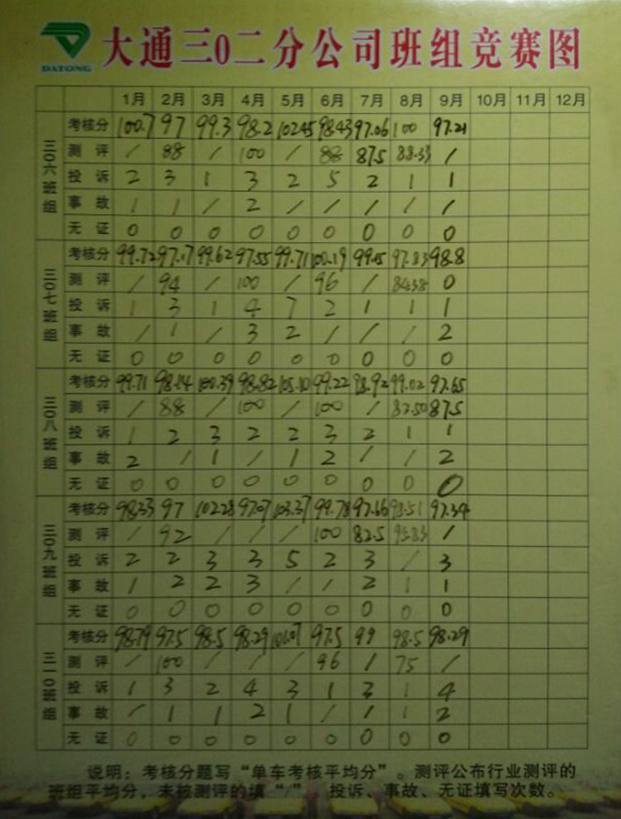 DATONG 大通三0二分公司班组竞赛图
1月 2月 3月 4月 5月 6月 7月 8月 9月 10月 11月 12月
三0六班组
考核分 100.7 97 99.3 98.2 102.45 98.43 97.06 100 97.21
测评 / 88 / 100 / 88 87.5 88.33 /
投诉 2 3 1 3 2 5 2 1 1
事故 1 1 / 2 / / / / /
无证 0 0 0 0 0 0 0 0 0
三0七班组
考核分 99.72 97.17 99.62 97.55 99.71 100.19 99.15 97.83 98.8
测评 / 94 / 100 / 96 / 84.38 0
投诉 1 3 1 4 7 2 1 1 1
事故 / 1 / 3 2 / / / 2
无证 0 0 0 0 0 0 0 0 0
三0八班组
考核分 99.71 98.14 100.39 98.82 105.10 99.22 98.92 99.02 97.65
测评 / 88 / 100 / 100 / 87.50 87.5
投诉 1 2 3 2 2 3 2 1 1
事故 2 / 1 / 1 2 / / 2
无证 0 0 0 0 0 0 0 0 0
三0九班组
考核分 98.33 97 102.28 97.07 103.37 99.78 97.66 98.51 97.34
测评 / 92 / / / 100 82.5 95.83 /
投诉 2 2 3 3 5 2 3 / 3
事故 1 2 2 3 / / 2 1 1
无证 0 0 0 0 0 0 0 0 0
三一0班组
考核分 98.79 97.5 98.5 98.29 97.5 99 98.5 98.29
测评 / 100 / / / 96 / 75 /
投诉 1 3 2 4 3 1 3 1 4
事故 / 1 1 2 1 / 1 1 2
无证 0 0 0 0 0 0 0 0 0
说明：考核分题写“单车考核平均分”。测评公布行业测评的
班组平均分，未核测评的填“/”  投诉、事故、无证填写次数。